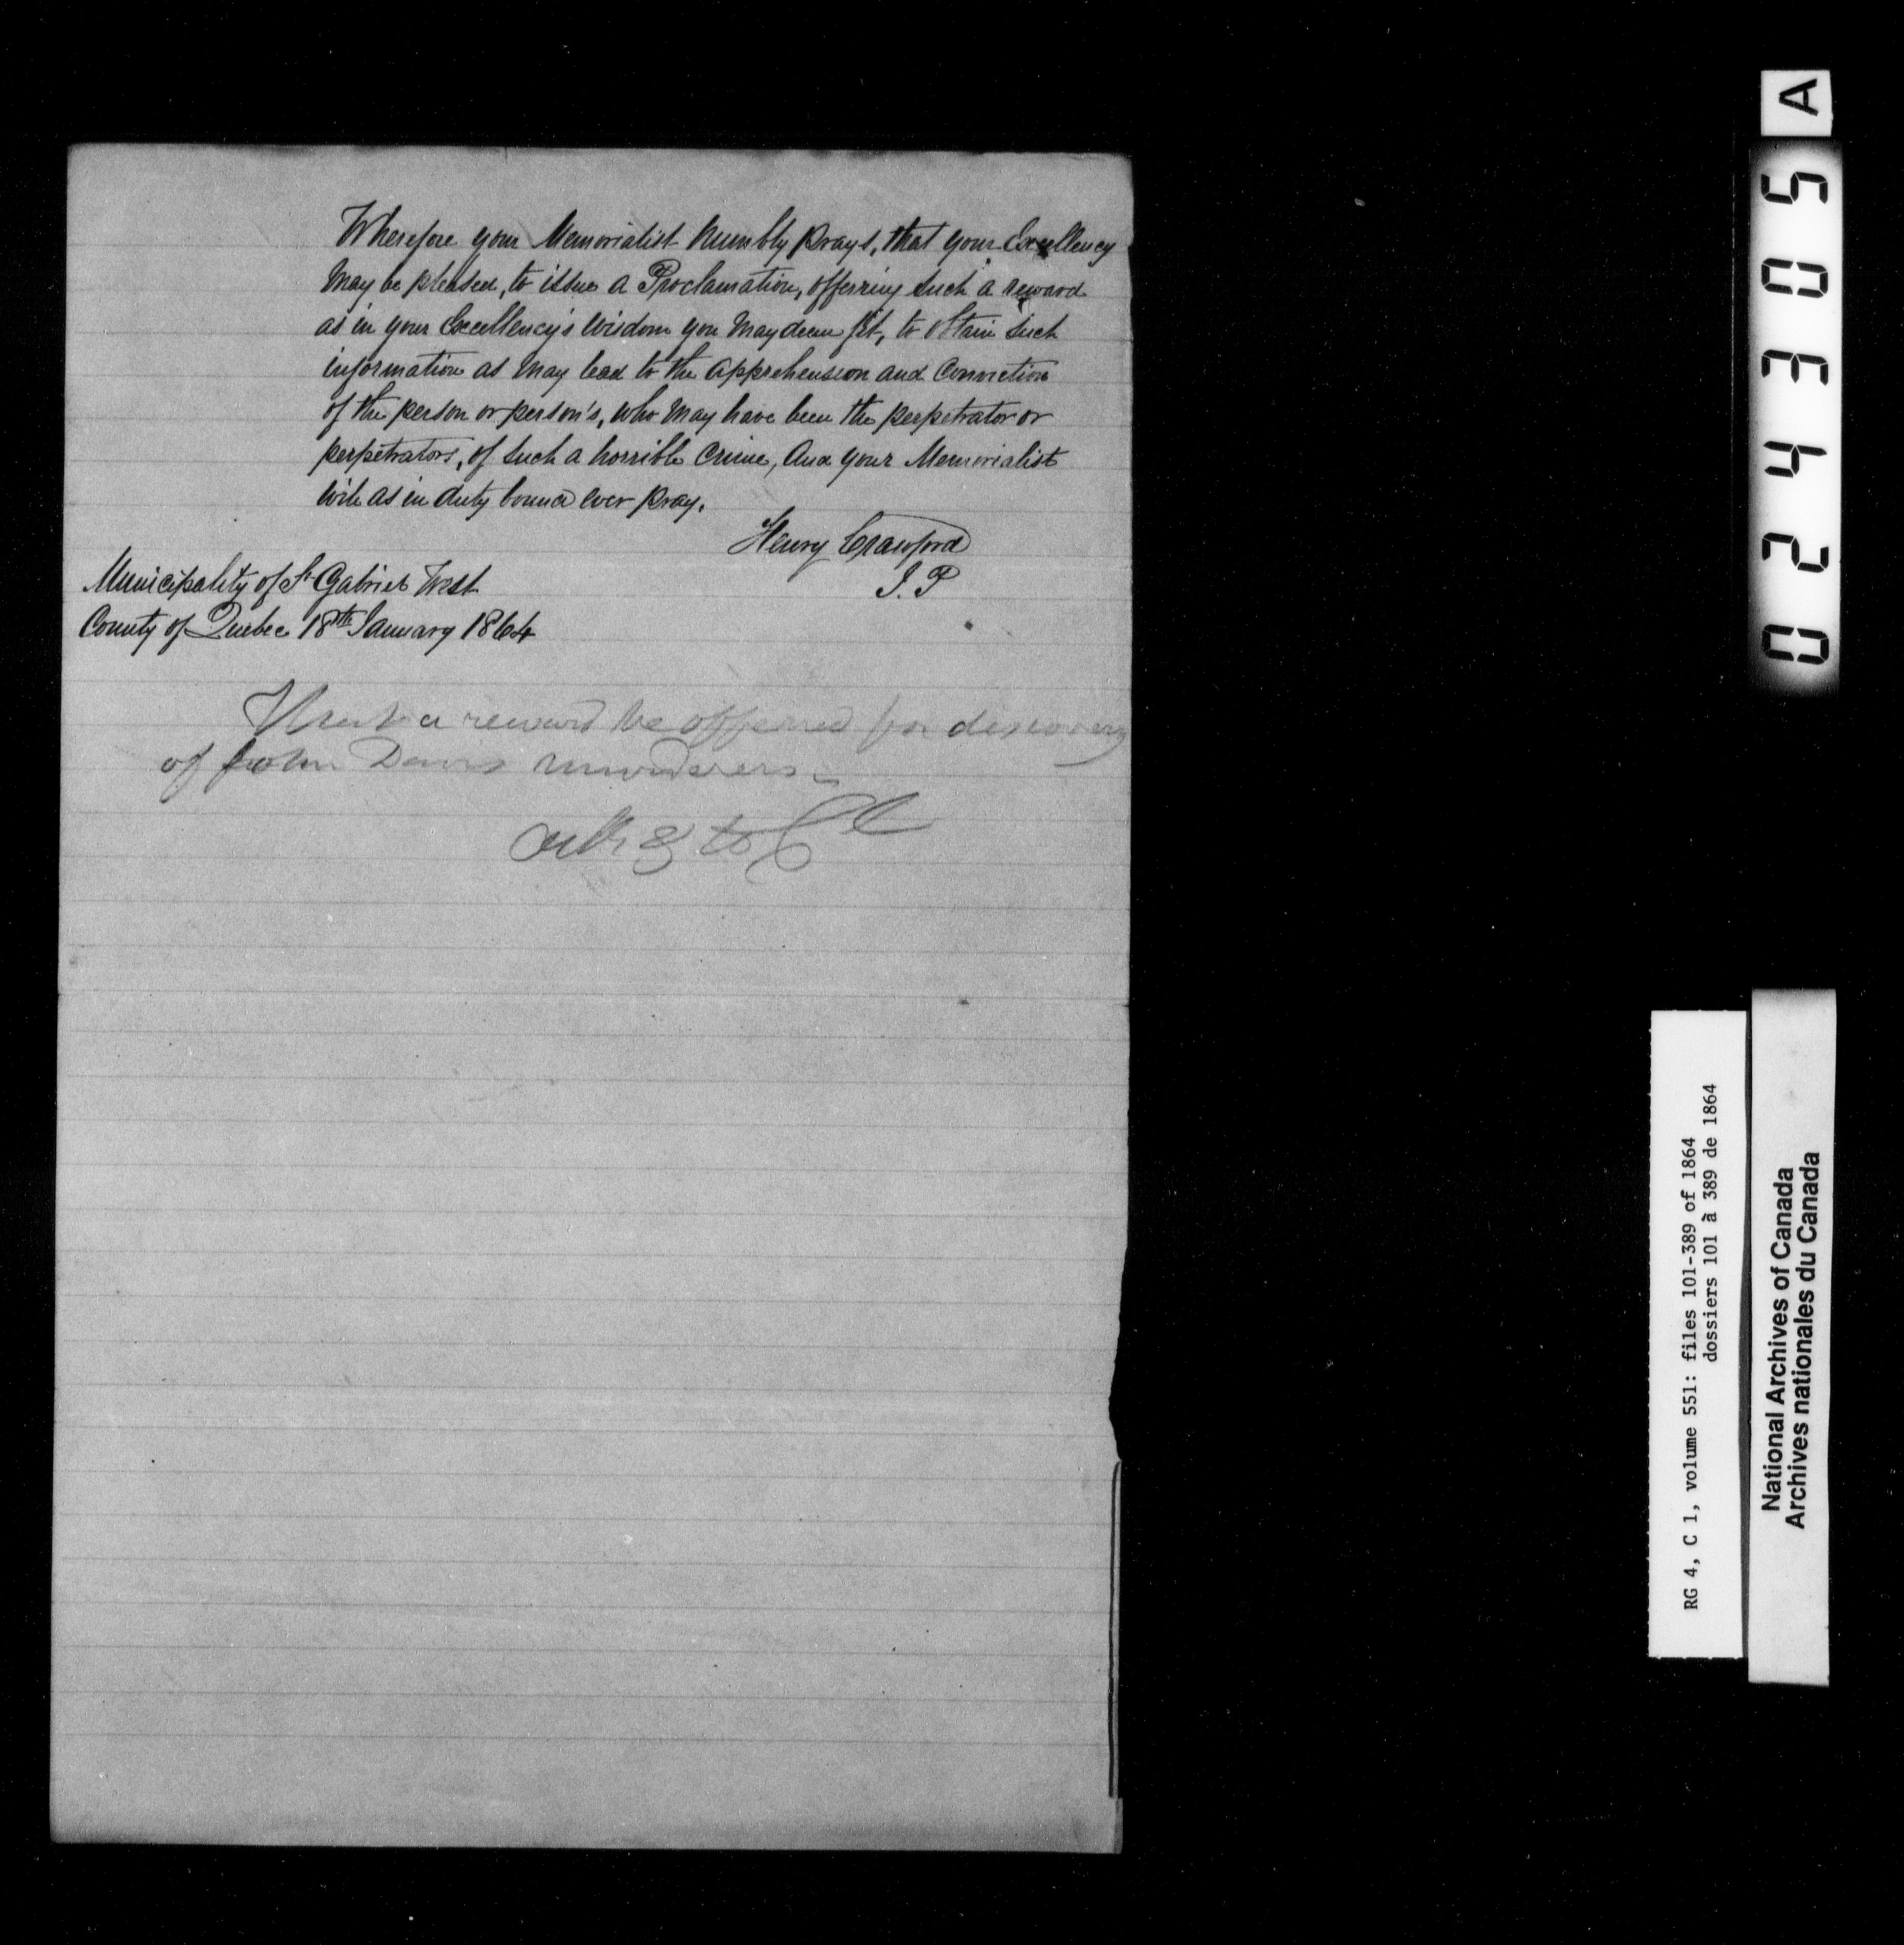 Wherefore your Memorialist humbly prays, that your Excellency
may be pleased, to issue a Proclamation, offerring such a reward
as in your Excellency's wisdom you may deem fit, to obtain such
information as may lead to the apprehension and Conviction
of the person or person's, who may have been the perpetrator or
perpetrators, of such a horrible crime, And your Memorialist
will as in duty bound ever pray.
Henry Crawford
J. P
Municipality of St Gabriel West
County of Quebec 18th January 1864
That a reward be offerred for discovery
of John Davis murderers
A
024305
RG 4, C 1, volume 551: files 101-389 of 1864
dossiers 101 à 389 de 1864
National Archives of Canada
Archives nationales du Canada